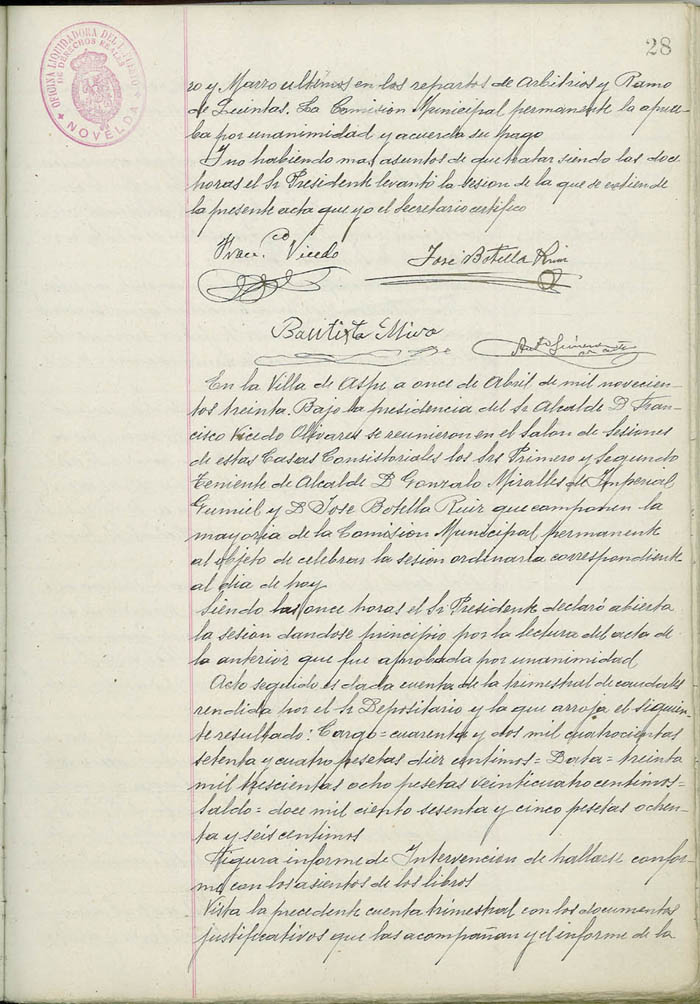 28
OFICINA LIQUIDADORA DEL IMPUESTO
DE DERECHOS REALES
NOVELDA
ro y Marzo ultimos en los repartos de Arbitrios y Ramo
de Quintas. La Comision Municipal permanente lo aprue-
ba por unanimidad y acuerda su pago
Y no habiendo mas asuntos de que tratar siendo las doce
horas el Sr Presidente levantó la sesion de la que se extiende
la presente acta que yo el Secretario certifico
Franco. Vicedo José Botella Ruiz
Bautista Mira Anto Gimeno
En la Villa de Aspe a once de Abril de mil novecien-
tos treinta. Bajo la presidencia del Sr Alcalde D Fran-
cisco Vicedo Ollivares se reunieron en el Salon de Sesiones
de estas Casas Consistoriales los Srs Primero y Segundo
Teniente de Alcalde D Gonzalo Miralles de Imperial
Gumiel y D Jose Botella Ruiz que componen la
mayoria de la Comision Municipal permanente
al objeto de celebrar la sesion ordinaria correspondiente
al dia de hoy
Siendo las once horas el Sr Presidente declaró abierta
la sesion dandose principio por la lectura del acta de
la anterior que fue aprobada por unanimidad
Acto seguido es dada cuenta de la trimestral de caudales
rendida por el Sr Depositario y la que arroja el siguien-
te resultado: Cargo = cuarenta y dos mil cuatrocientas
setenta y cuatro pesetas diez centimos = Data = treinta
mil trescientas ocho pesetas veinticuatro centimos =
Saldo = doce mil ciento sesenta y cinco pesetas ochen-
ta y seis centimos
Figura informe de Intervencion de hallarse confor-
me con los asientos de los libros
Vista la precedente cuenta trimestral con los documentos
justificativos que las acompañan y el informe de la